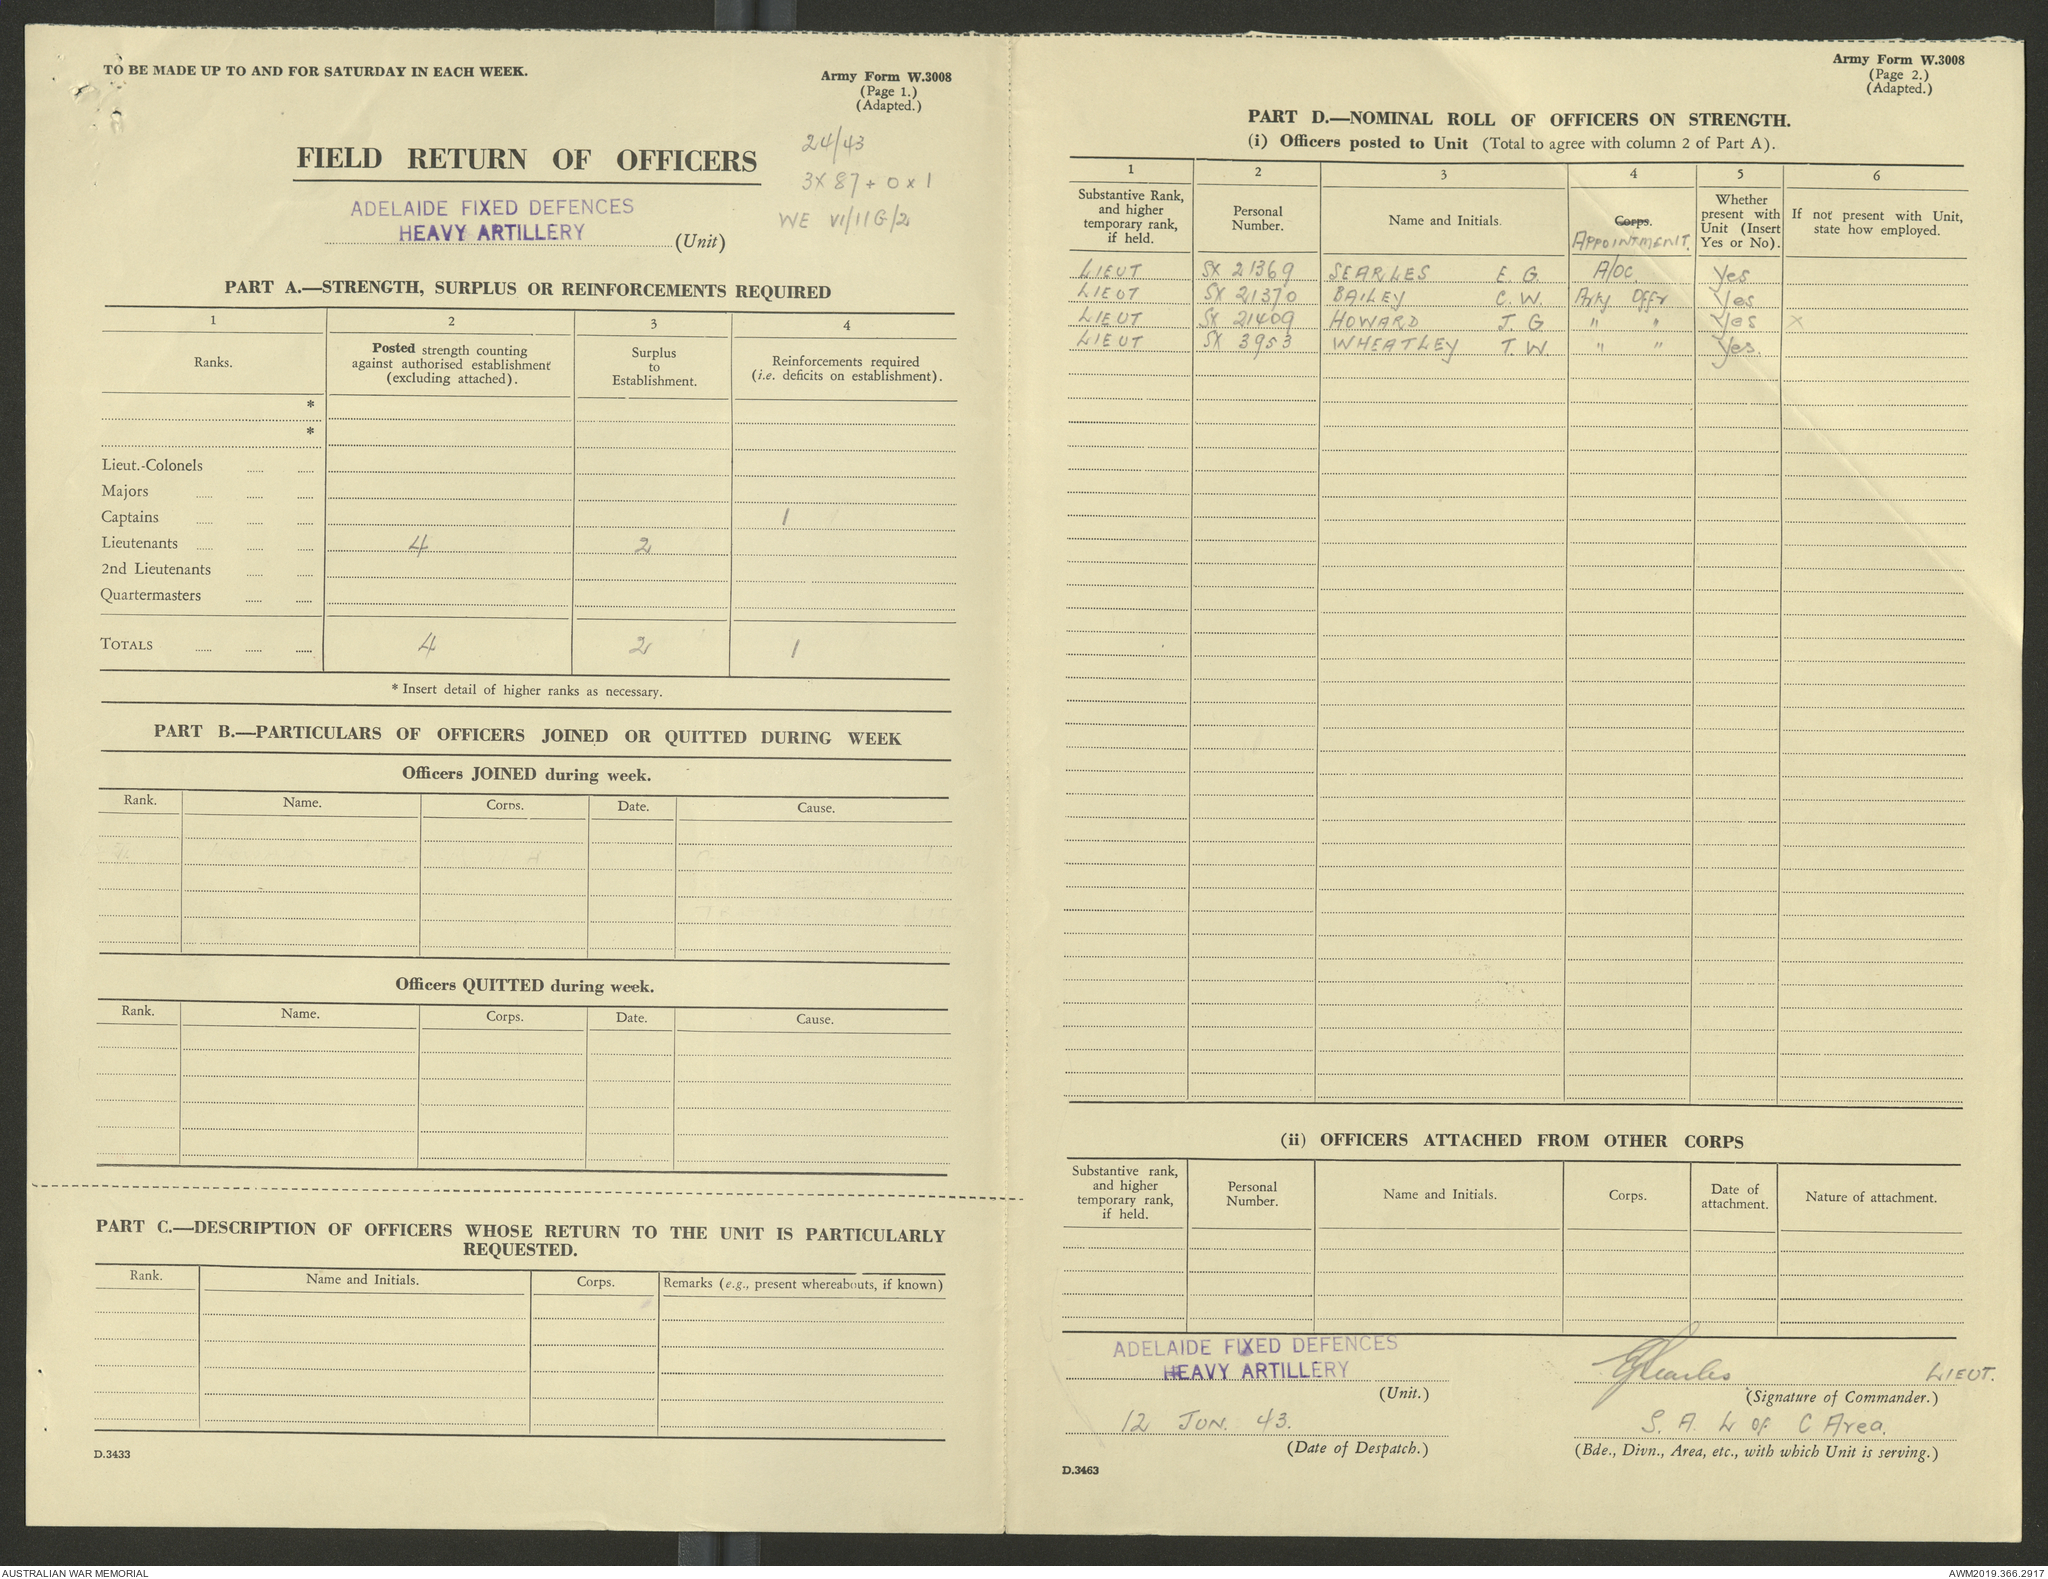 TO BE MADE UP TO AND FOR SATURDAY IN EACH WEEK.
Army Form W.3008
(Page 1.)
(Adapted.)
24/43
3 x 87 + 0 x 1
WE VI/11G/2
FIELD RETURN OF OFFICERS
ADELAIDE FIXED DEFENCES
HEAVY ARTILLERY (Unit)
PART A.—STRENGTH, SURPLUS OR REINFORCEMENTS REQUIRED
1 2 3 4
Ranks. Posted strength counting against authorised establishment (excluding attached). Surplus to Establishment. Reinforcements required (i.e. deficits on establishment).
*
*
Lieut.-Colonels
Majors
Captains 1
Lieutenants 4 2
2nd Lieutenants
Quartermasters
TOTALS 4 2 1
* Insert detail of higher ranks as necessary.
PART B.—PARTICULARS OF OFFICERS JOINED OR QUITTED DURING WEEK
Officers JOINED during week.
Rank. Name. Corps. Date. Cause.
Officers QUITTED during week.
Rank. Name. Corps. Date. Cause.
PART C.—DESCRIPTION OF OFFICERS WHOSE RETURN TO THE UNIT IS PARTICULARLY
REQUESTED.
Rank. Name and Initials. Corps. Remarks (e.g., present whereabouts, if known)
D.3433
Army Form W.3008
(Page 2.)
(Adapted.)
PART D.—NOMINAL ROLL OF OFFICERS ON STRENGTH.
(i) Officers posted to Unit (Total to agree with column 2 of Part A).
1 2 3 4 5 6
Substantive Rank, and higher temporary rank, if held. Personal Number. Name and Initials. Corps. APPOINTMENT. Whether present with Unit (Insert Yes or No). If not present with Unit, state how employed.
LIEUT SX 21369 SEARLES E. G. A/OC. Yes
LIEUT SX 21370 BAILEY C. W. Arty Offr Yes
LIEUT SX 21409 HOWARD J. G " " Yes X
LIEUT SX 3953 WHEATLEY T. W. " " Yes.
(ii) OFFICERS ATTACHED FROM OTHER CORPS
Substantive rank, and higher temporary rank, if held. Personal Number. Name and Initials. Corps. Date of attachment. Nature of attachment.
ADELAIDE FIXED DEFENCES
HEAVY ARTILLERY
(Unit.)
12 JUN. 43.
(Date of Despatch.)
EGSearles LIEUT.
(Signature of Commander.)
S. A. L of C Area.
(Bde., Divn., Area, etc., with which Unit is serving.)
D.3463
AUSTRALIAN WAR MEMORIAL
AWM2019.366.2917